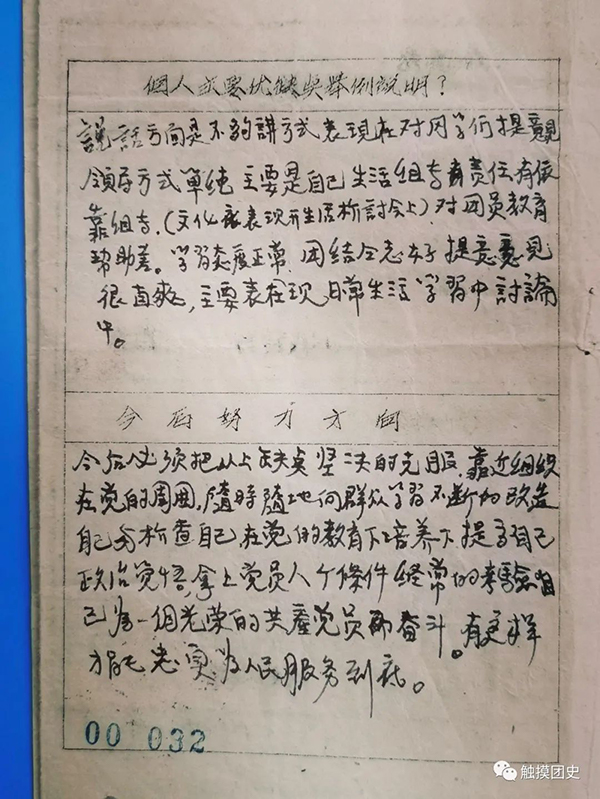 個人主要优缺点举例說明？
說話方面是不夠講方式表現在对同学们提意見
領导方式單純主要是自己生活组 責任有依
靠组 。(文化 表現在生活檢討会上)对团员教育
帮助差。学習态度正常 团结同志好 提意意見
很直爽，主要表在現日常生活学習中討論
中。
今后努力方向
今后必须把以上缺点坚决的克服，靠近组织
在党的周围，隨時隨地向群众学習不断的改造
自己分析查自己，在党的教育下培养下提高自己
政治觉悟，拿上党员八个條件経常的考驗自
己为一個光荣的共產党员而奋斗。有更样
才能忠实为人民服务到底。
00 032
触摸团史